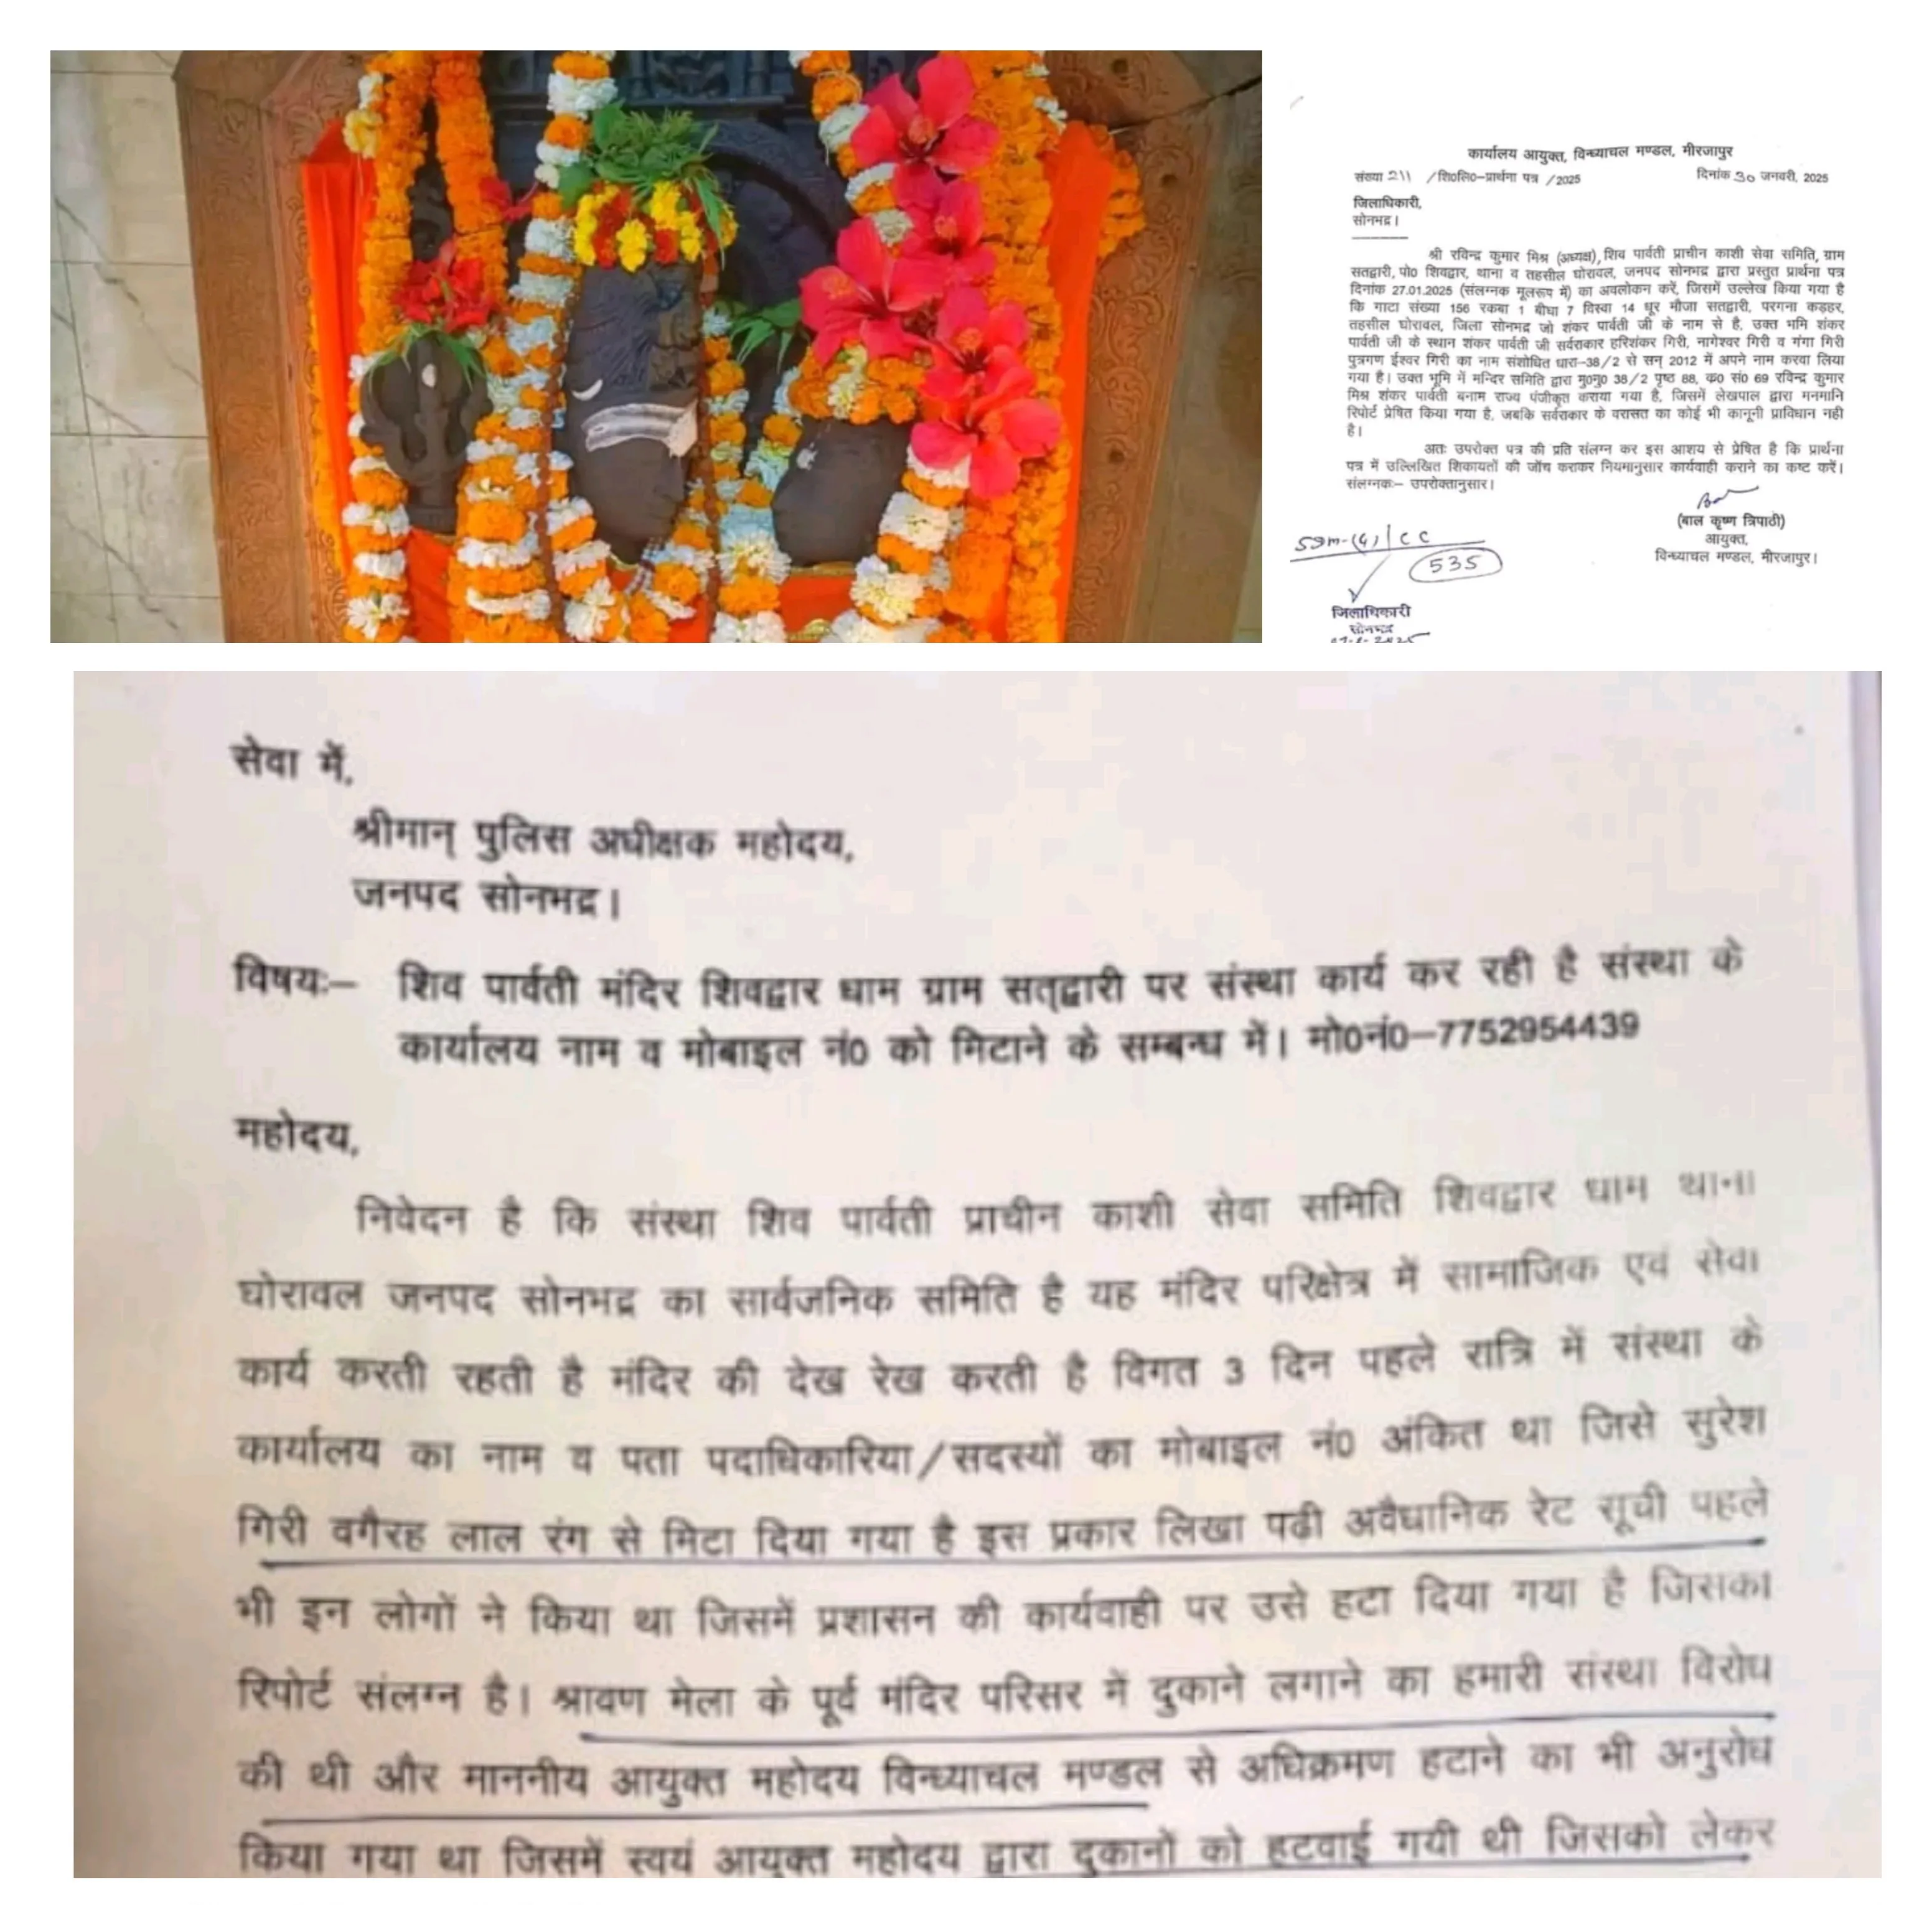 कार्यालय आयुक्त, विन्ध्याचल मण्डल, मीरजापुर
संख्या 211 /शि0लि0-प्रार्थना पत्र /2025 दिनांक 30 जनवरी, 2025
जिलाधिकारी,
सोनभद्र।
श्री रविन्द्र कुमार मिश्र (अध्यक्ष), शिव पार्वती प्राचीन काशी सेवा समिति, ग्राम
सतद्वारी, पो0 शिवद्वार, थाना व तहसील घोरावल, जनपद सोनभद्र द्वारा प्रस्तुत प्रार्थना पत्र
दिनांक 27.01.2025 (संलग्नक मूलरूप में) का अवलोकन करें, जिसमें उल्लेख किया गया है
कि गाटा संख्या 156 रकबा 1 बीघा 7 विस्वा 14 धूर मौजा सतद्वारी, परगना कड़हर,
तहसील घोरावल, जिला सोनभद्र जो शंकर पार्वती जी के नाम से है, उक्त भमि शंकर
पार्वती जी के स्थान शंकर पार्वती जी सर्वराकार हरिशंकर गिरी, नागेश्वर गिरी व गंगा गिरी
पुत्रगण ईश्वर गिरी का नाम संशोधित धारा-38/2 से सन् 2012 में अपने नाम करवा लिया
गया है। उक्त भूमि में मन्दिर समिति द्वारा मु0नु0 38/2 पृष्ठ 88, क0 सं0 69 रविन्द्र कुमार
मिश्र शंकर पार्वती बनाम राज्य पंजीकृत कराया गया है, जिसमें लेखपाल द्वारा मनमानि
रिपोर्ट प्रेषित किया गया है, जबकि सर्वराकार के वरासत का कोई भी कानूनी प्राविधान नही
है।
अतः उपरोक्त पत्र की प्रति संलग्न कर इस आशय से प्रेषित है कि प्रार्थना
पत्र में उल्लिखित शिकायतों की जाँच कराकर नियमानुसार कार्यवाही कराने का कष्ट करें।
संलग्नकः- उपरोक्तानुसार।
(बाल कृष्ण त्रिपाठी)
आयुक्त,
विन्ध्याचल मण्डल, मीरजापुर।
SDM-(G)/CC
535
जिलाधिकारी
सोनभद्र
सेवा में,
श्रीमान् पुलिस अधीक्षक महोदय,
जनपद सोनभद्र।
विषयः- शिव पार्वती मंदिर शिवद्वार धाम ग्राम सत्द्वारी पर संस्था कार्य कर रही है संस्था के
कार्यालय नाम व मोबाइल नं0 को मिटाने के सम्बन्ध में। मो0नं0-7752954439
महोदय,
निवेदन है कि संस्था शिव पार्वती प्राचीन काशी सेवा समिति शिवद्वार धाम थाना
घोरावल जनपद सोनभद्र का सार्वजनिक समिति है यह मंदिर परिक्षेत्र में सामाजिक एवं सेवा
कार्य करती रहती है मंदिर की देख रेख करती है विगत 3 दिन पहले रात्रि में संस्था के
कार्यालय का नाम व पता पदाधिकारिया/सदस्यों का मोबाइल नं0 अंकित था जिसे सुरेश
गिरी वगैरह लाल रंग से मिटा दिया गया है इस प्रकार लिखा पढी अवैधानिक रेट सूची पहले
भी इन लोगों ने किया था जिसमें प्रशासन की कार्यवाही पर उसे हटा दिया गया है जिसका
रिपोर्ट संलग्न है। श्रावण मेला के पूर्व मंदिर परिसर में दुकाने लगाने का हमारी संस्था विरोध
की थी और माननीय आयुक्त महोदय विन्ध्याचल मण्डल से अधिक्रमण हटाने का भी अनुरोध
किया गया था जिसमें स्वयं आयुक्त महोदय द्वारा दुकानों को हटवाई गयी थी जिसको लेकर